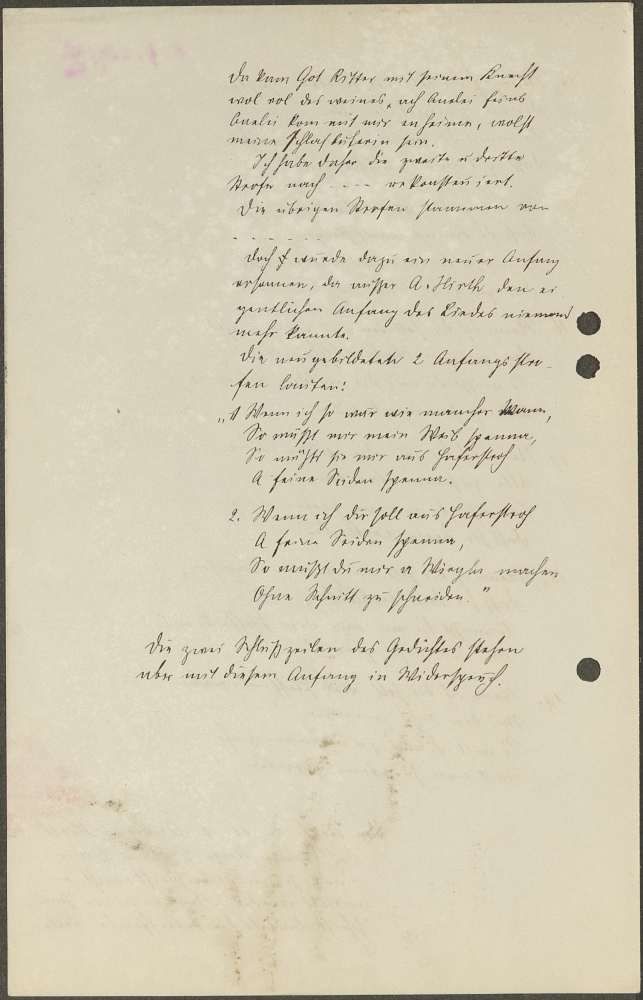 Da kam Got Ritter mit seinem Knecht
wol vol des weines, ach Anelei feins
Anelei kom mit mir enheime, wolst
meine Schlafbulerin sein.
Ich habe daher die zweite u dritte
Strofe nach - - - rekonstruiert.
Die übrigen Strofen stammen von
- - - - - -
doch wurde dazu ein neuer Anfang
ersonnen, da außer A. Hirth den ei
gentlichen Anfang des Liedes niemand
mehr kannte.
Die neugebildeten 2 Anfangsstro-
fen lauten:
„1 Wenn ich so wär wie mancher Mann,
So müßt mir mein Weib spenna,
So müßt sie mir aus Haferstroh
A feine Seiden spenna.
2. Wenn ich dir soll aus Haferstroh
A feine Seiden spenna,
So mußt du mir a machen
Ohne Schnitt zu schneiden."
Die zwei Schlußzeilen des Gedichtes stehen
aber mit diesem Anfang in Widerspruch.